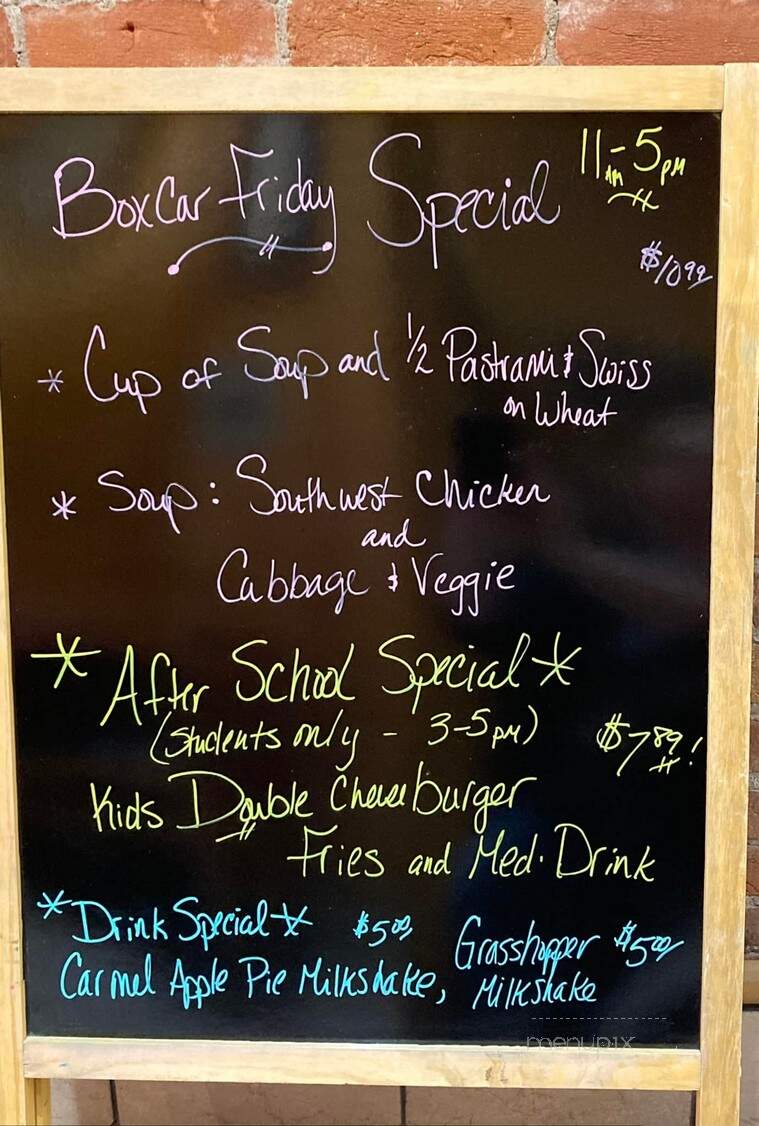 BoxCar Friday Special
11AM-5PM
$10.99
* Cup of Soup and 1/2 Pastrami & Swiss
on Wheat
* Soup: Southwest Chicken
and
Cabbage & Veggie
* After School Special *
(Students only - 3-5pm)
$7.89!
Kids Double Cheeseburger
Fries and Med. Drink
* Drink Special * $5.00
Carmel Apple Pie Milkshake,
Grasshopper $5.00
Milkshake
menupix